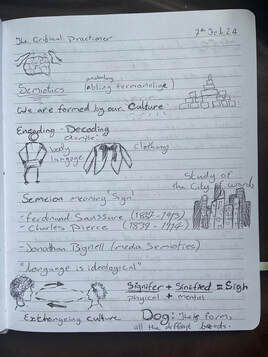 The Critical Practioner
7th Feb 24
Semiotics
We are formed by our Culture
Encoding - Decoding
Example
body
langage
clothing
Study of
the City & words
Semeion meaning "Sign"
- ferdinand Saussure (1857-1913)
- Charles Pierce (1839-1914)
- Jonathan Bignell (media Semiotics)
"Language is ideological"
Signifer + Sinefied = Sign
physical + mental
Exchangeing culture
Dog: There form,
all the diffrent breeds.